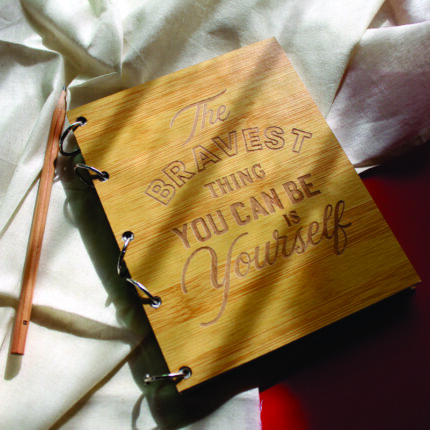 The
BRAVEST
THING
YOU CAN BE
IS
Yourself